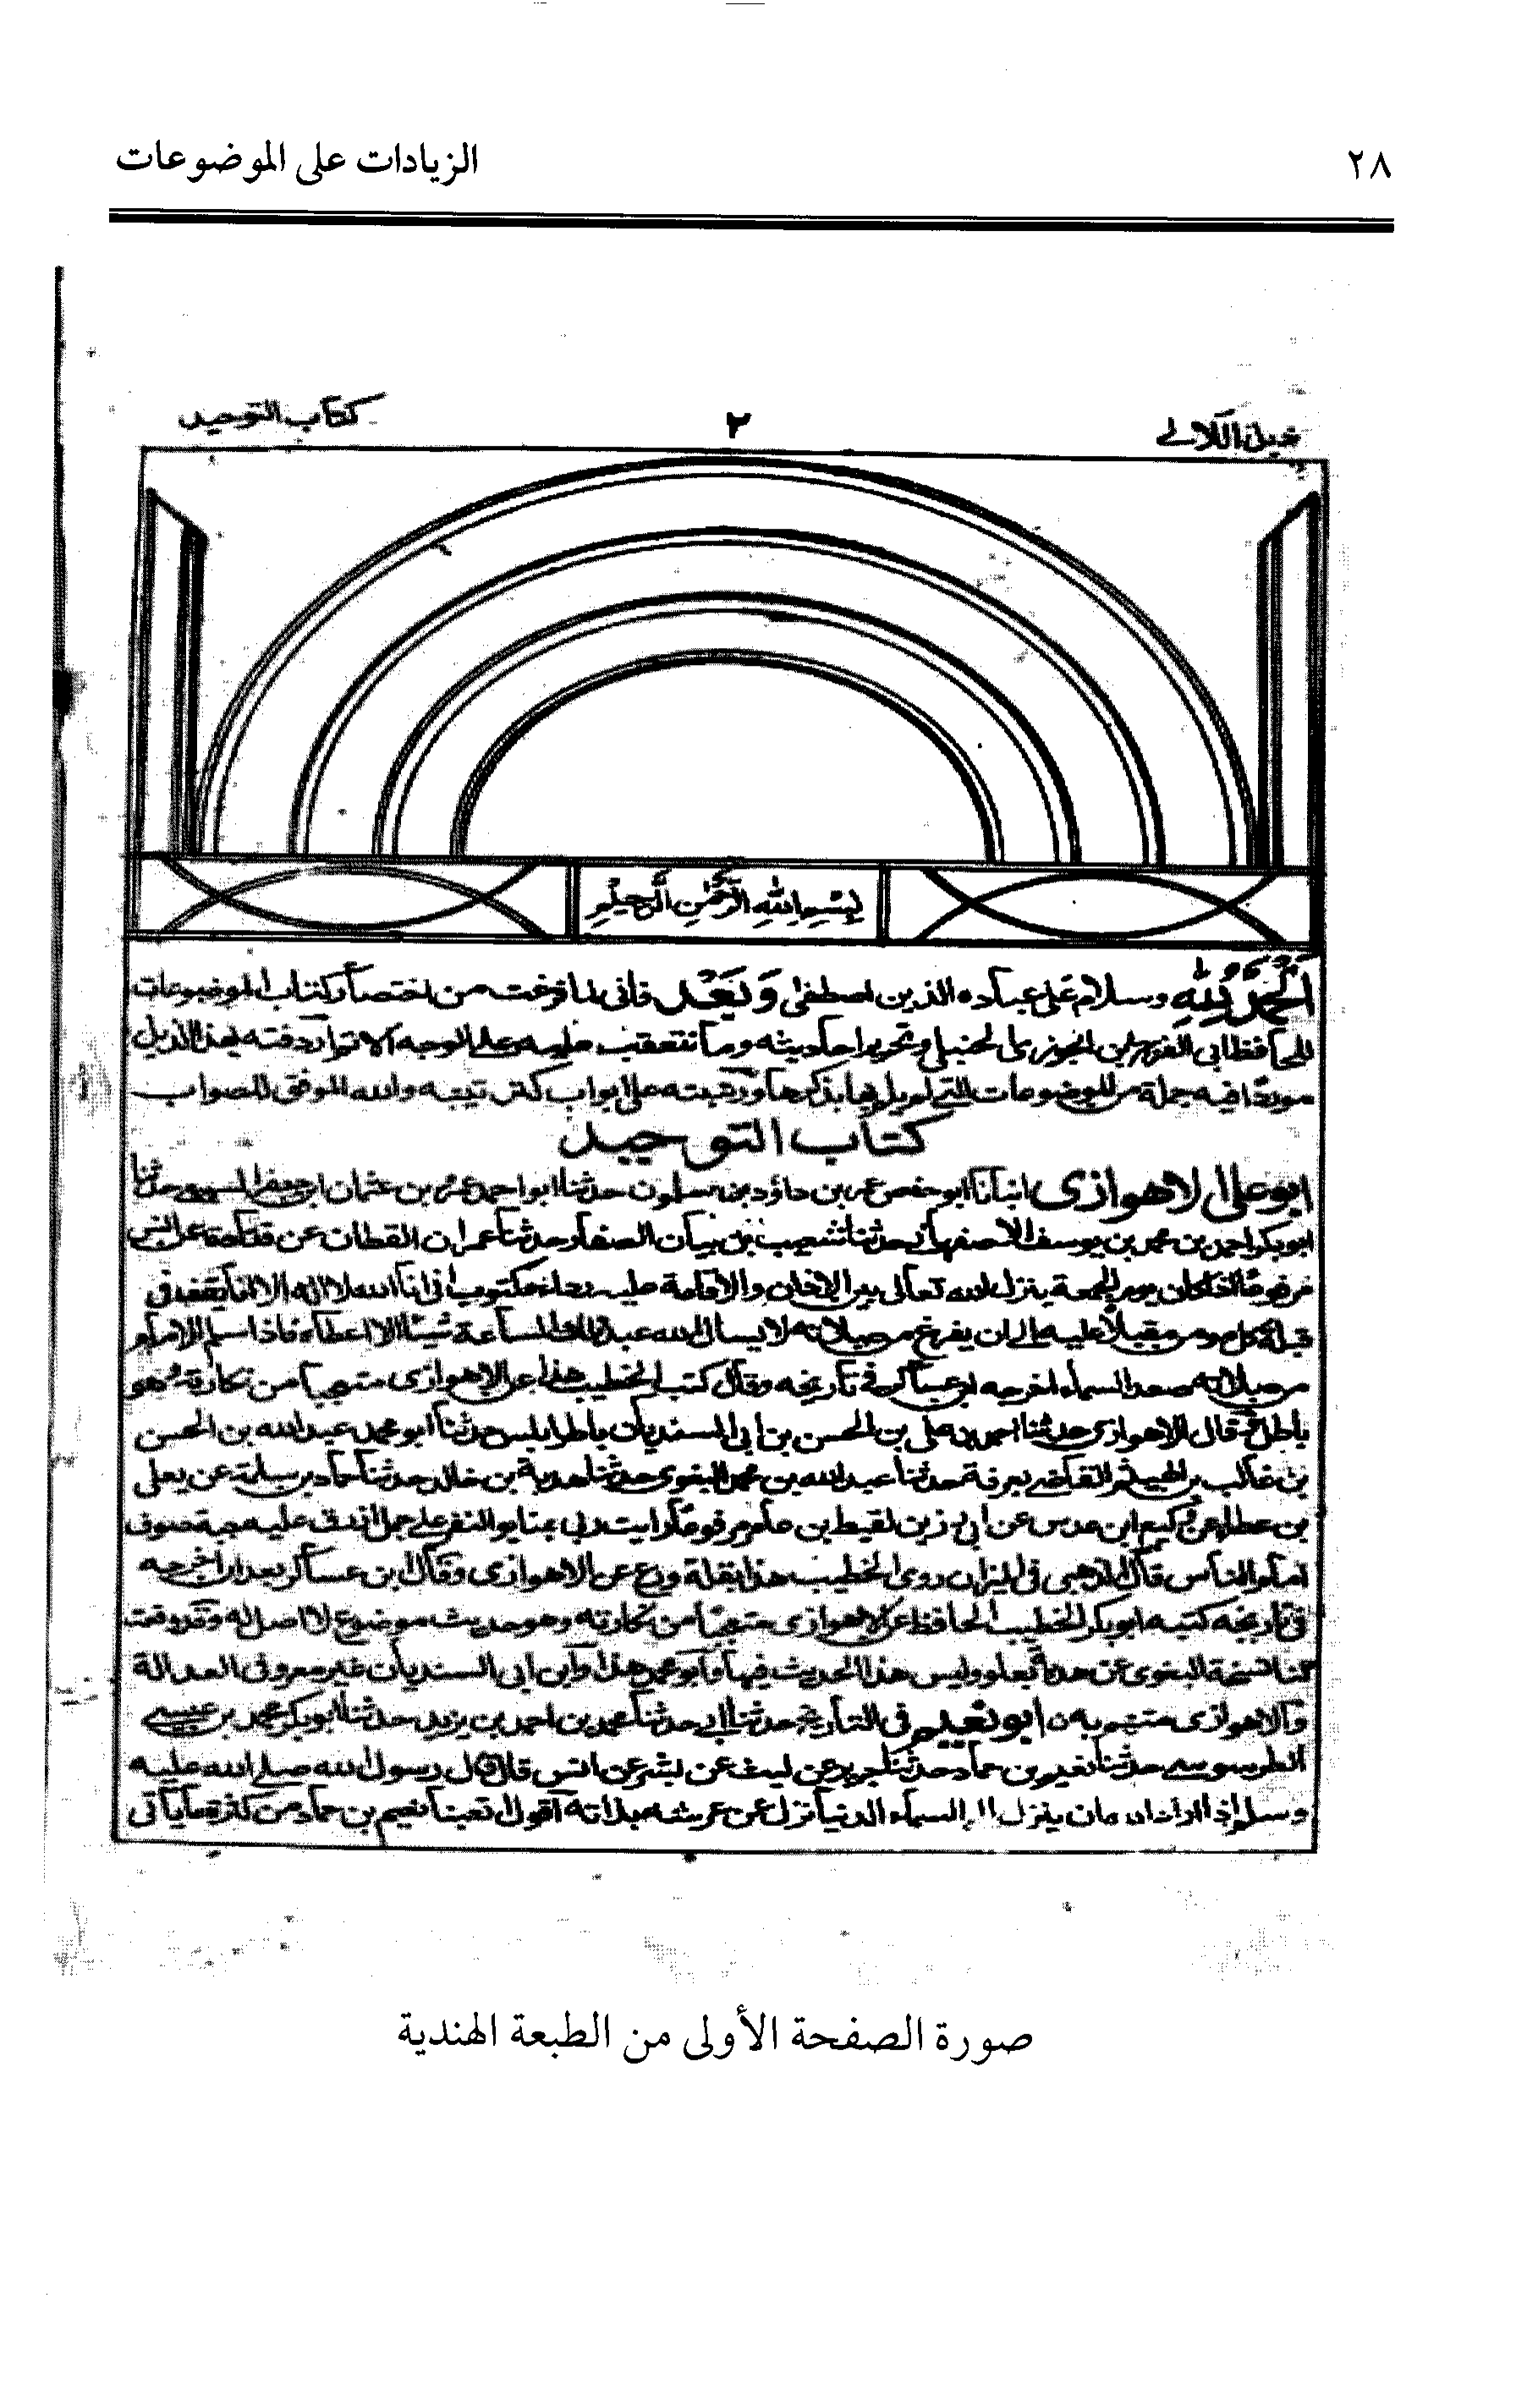 ٢٨
الزيادات على الموضوعات
ذيل اللآلي
٢
كتاب التوحيد
بسم الله الرحمن الرحيم
الحمد لله وسلام على عباده الذين اصطفى وبعد فاني لما فرغت من اختصار كتاب الموضوعات
للحافظ ابي الفرج بن الجوزي الحنبلي وتحرير احاديثه وما تعقب عليه وعلى الوجه اردفته بهذا الذيل
موردا فيه جملة من الموضوعات التي لم يلم بها بذكرها ورتبته على ابواب كترتيبه والله الموفق للصواب
كتاب التوحيد
ابو علي الاهوازي انبأنا ابو حفص عمر بن داؤد بن سلمون حدثنا ابو احمد بن عثمان حدثنا
ابوبكر احمد بن محمد بن يوسف الاصفهاني حدثنا شعيب بن بيان الصفار حدثنا عمران القطان عن قتادة عن انس
مرفوعا اذا كان يوم الجمعة ينزل الله تعالى بين الاذان والاقامة عليه رداء مكتوب اني انا الله لا اله الا انا يقف في
قبلة كل مؤمن مقبلا عليه الى ان يفرغ من صلاته لا يسال الله عبد تلك الساعة شيئا الا اعطاه فاذا سلم الامام
من صلاته صعد السماء اخرجه ابن عساكر في تاريخه وقال كتب الخطيب هذا عن الاهوازي متعجبا من نكارته وهو
باطل قال الاهوازي حدثنا احمد بن علي بن الحسن بن ابي السنديان باطرابلس حدثنا ابو محمد عبد الله بن الحسن
بن غالب بن الهيثم القاضي بعرفة حدثنا عبد الله بن محمد البغوي حدثنا هدبة بن خالد حدثنا حماد بن سلمة عن يعلى
بن عطاء عن وكيع ابن عدس عن ابي رزين لقيط بن عامر مرفوعا رايت ربي بمنا يوم النفر على جمل ازرق عليه جبة صوف
امام الناس قال الذهبي في الميزان روى الخطيب هذا عن الاهوازي وقال ابن عساكر بعد ان اخرجه
في تاريخه كتبه ابوبكر الخطيب الحافظ عن الاهوازي متعجبا من نكارته وهو حديث موضوع لا اصل له وقد وقعت
لنا نسخة البغوي عن هدبة بعلو وليس هذا الحديث فيها وابو محمد هذا وابن ابي السنديان غير معروفي العدالة
والاهوازي متهم به ابو نعيم في التاريخ حدثنا ابي حدثنا محمد بن احمد بن يزيد حدثنا ابو بكر محمد بن عيسى
الطرسوسي حدثنا نعيم بن حماد حدثنا جرير عن ليث عن بشر عن انس قال قال رسول الله صلى الله عليه
وسلم اذا اراد الله ان ينزل الى السماء الدنيا نزل عن عرشه بذاته اقول اتعبنا نعيم بن حماد من كثرة ما ياتي
صورة الصفحة الأولى من الطبعة الهندية